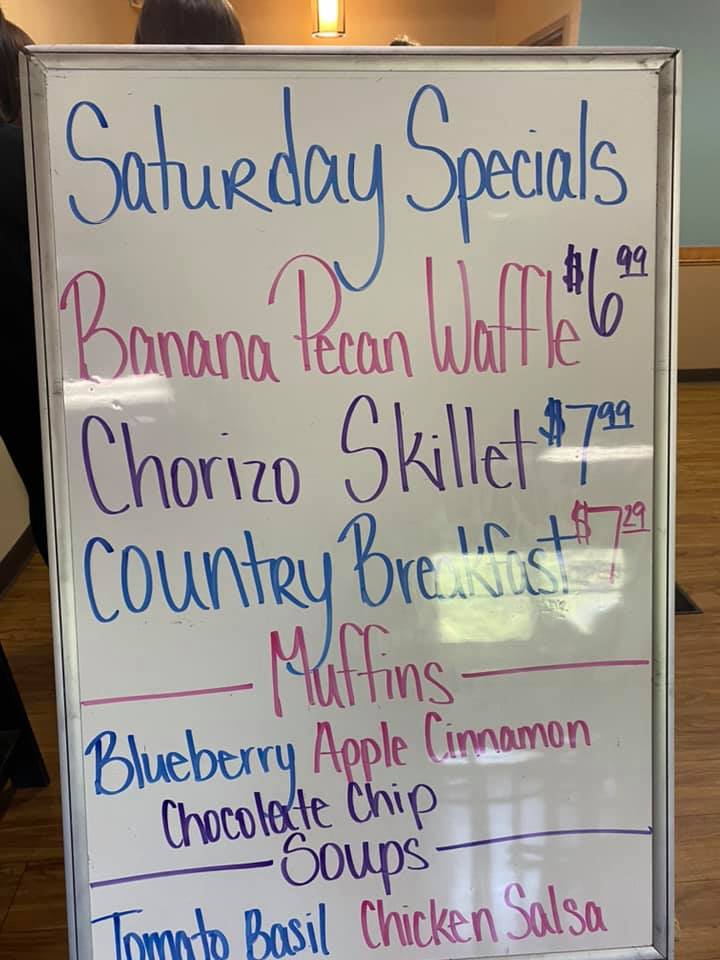 Saturday Specials
Banana Pecan Waffle $6 99
Chorizo Skillet $7 99
Country Breakfast $7 29
Muffins
Blueberry Apple Cinnamon
Chocolate Chip
Soups
Tomato Basil Chicken Salsa